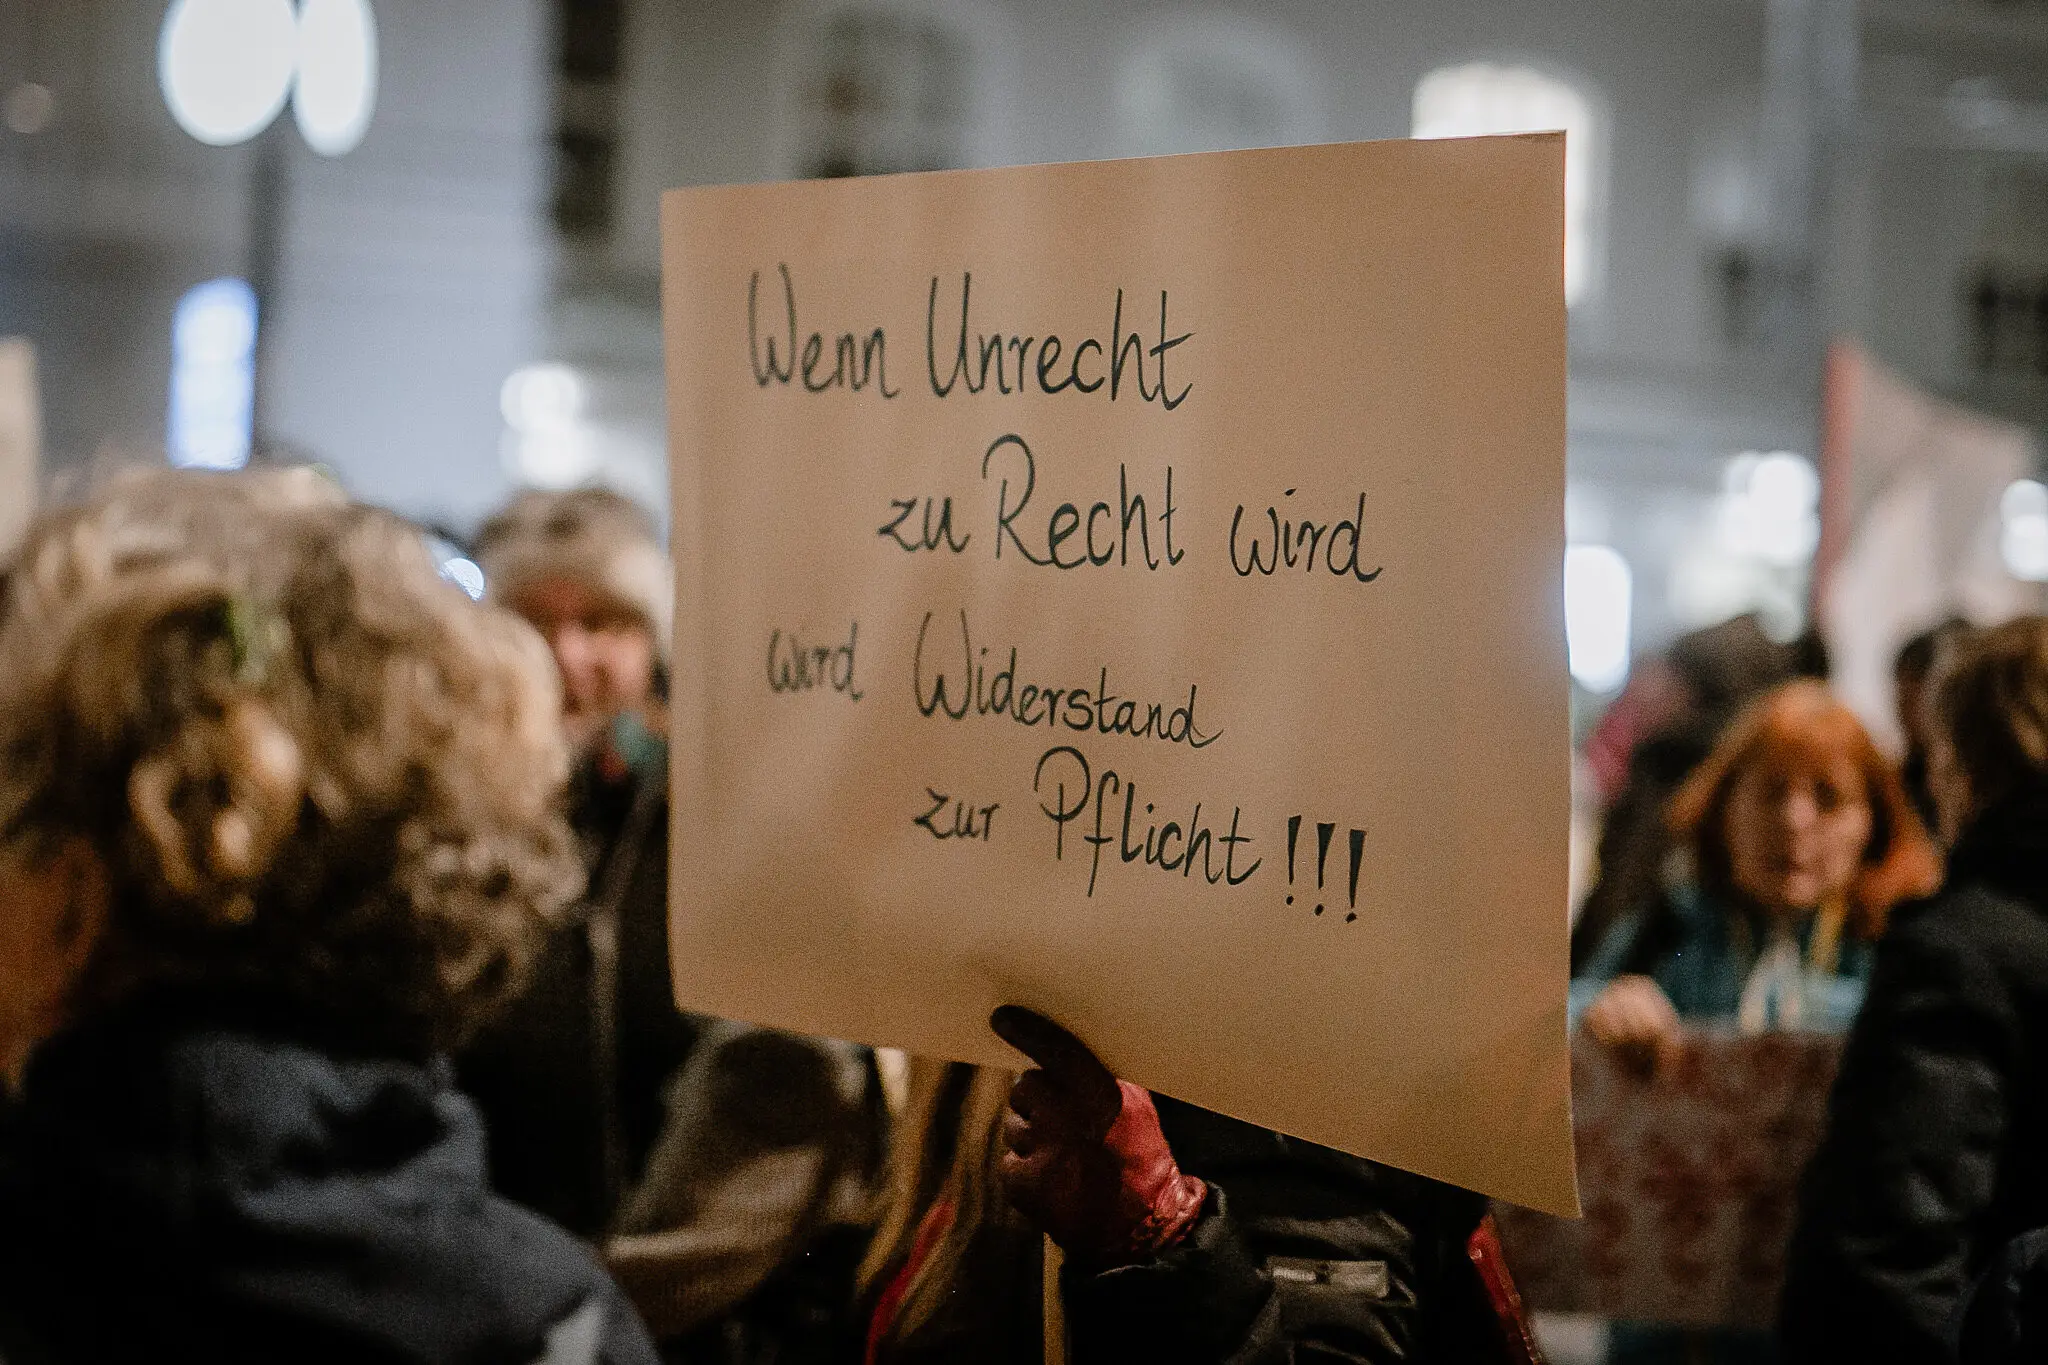 Wenn Unrecht
zu Recht wird
wird Widerstand
zur Pflicht!!!